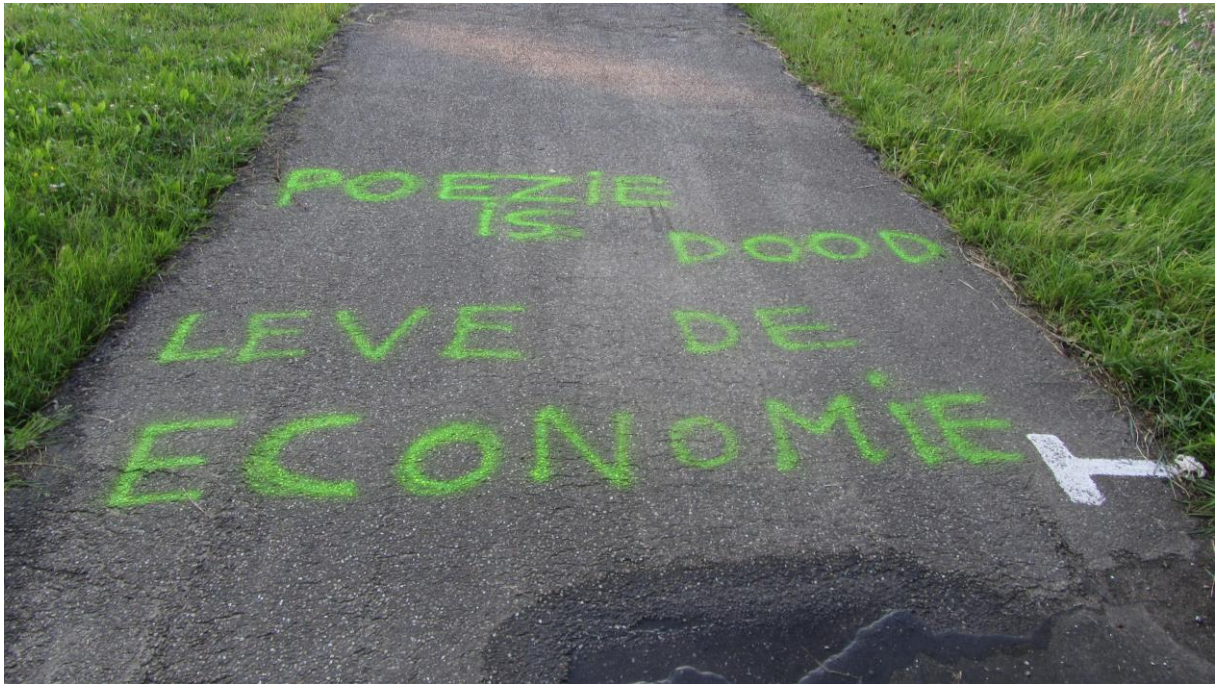 POEZiE
iS DOOD
LEVE DE
ECONOMiE